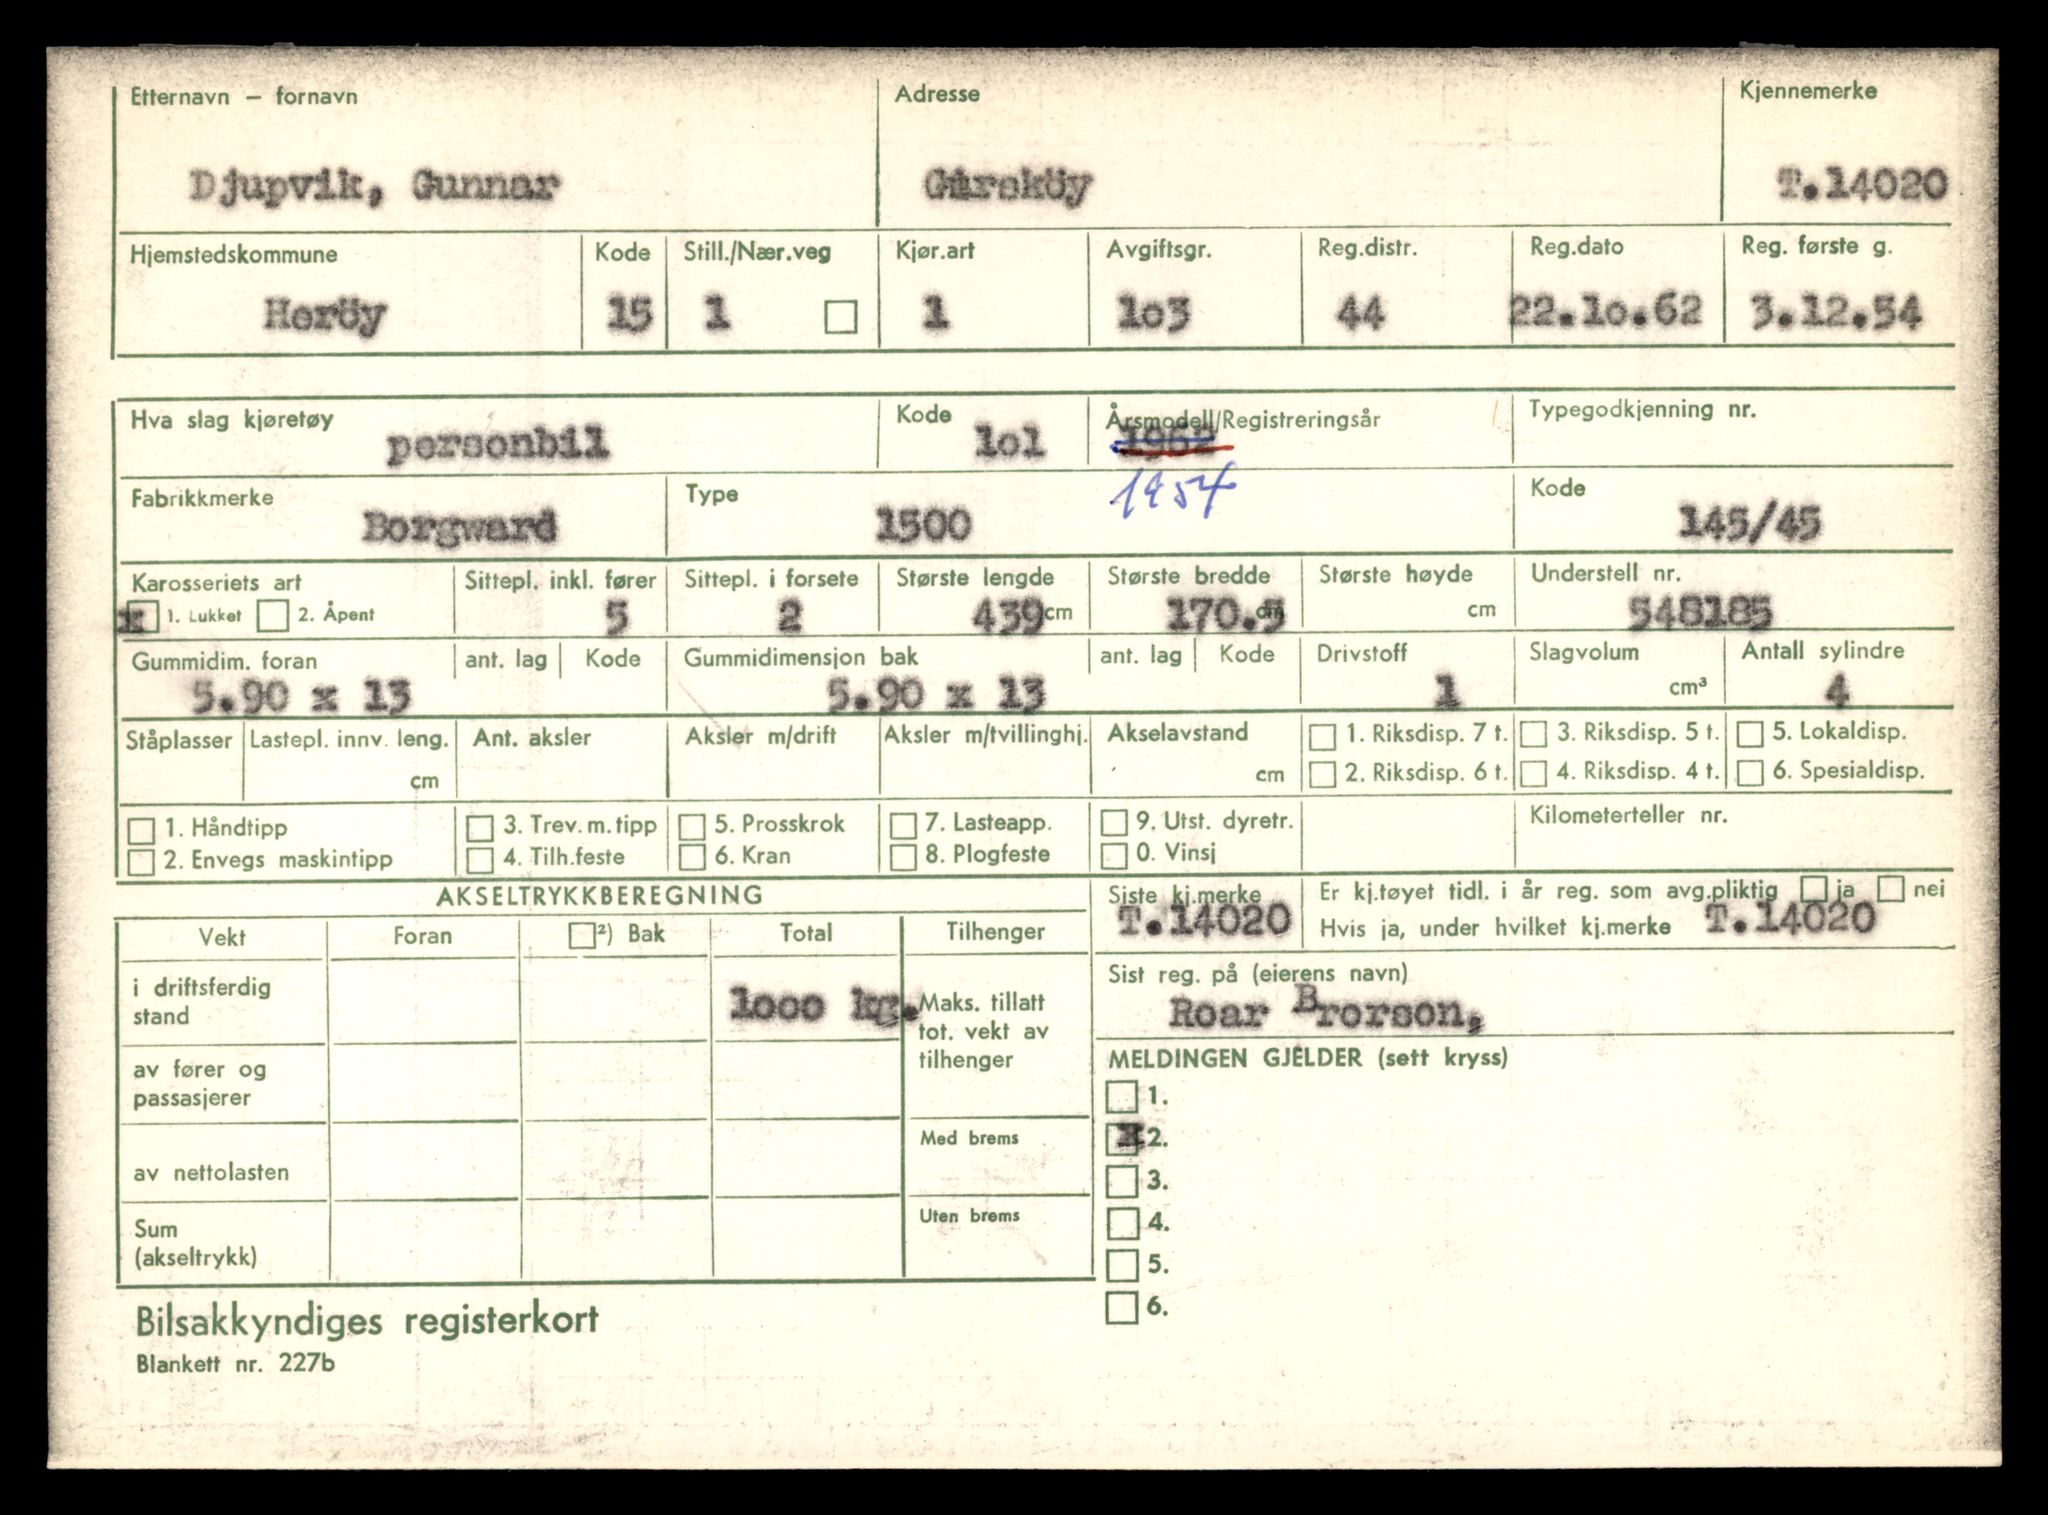 Etternavn – fornavn Adresse Kjennemerke
Djupvik, Gunnar Gursköy T.14020
Hjemstedskommune Kode Still./Nær.veg Kjør.art Avgiftsgr. Reg.distr. Reg.dato Reg. første g.
Heröy 15 1 1 1o3 44 22.1o.62 3.12.54
Hva slag kjøretøy Kode Årsmodell/Registreringsår Typegodkjenning nr.
personbil 1o1 1962
1954
Fabrikkmerke Type Kode
Borgward 1500 145/45
Karosseriets art Sittepl. inkl. fører Sittepl. i forsete Største lengde Største bredde Største høyde Understell nr.
x 1. Lukket 2. Åpent 5 2 439 cm 170.5 cm cm 548185
Gummidim. foran ant. lag Kode Gummidimensjon bak ant. lag Kode Drivstoff Slagvolum Antall sylindre
5.90 x 13 5.90 x 13 1 cm³ 4
Ståplasser Lastepl. innv. leng. Ant. aksler Aksler m/drift Aksler m/tvillinghj. Akselavstand 1. Riksdisp. 7 t. 3. Riksdisp. 5 t. 5. Lokaldisp.
cm cm 2. Riksdisp. 6 t. 4. Riksdisp. 4 t. 6. Spesialdisp.
1. Håndtipp 3. Trev. m. tipp 5. Prosskrok 7. Lasteapp. 9. Utst. dyretr. Kilometerteller nr.
2. Envegs maskintipp 4. Tilh.feste 6. Kran 8. Plogfeste 0. Vinsj
AKSELTRYKKBEREGNING Siste kj.merke Er kj.tøyet tidl. i år reg. som avg.pliktig ja nei
T.14020 Hvis ja, under hvilket kj.merke T.14020
Vekt Foran ²) Bak Total Tilhenger
Sist reg. på (eierens navn)
i driftsferdig stand 1000 kg. Maks. tillatt tot. vekt av tilhenger
Roar Brorson,
av fører og passasjerer
MELDINGEN GJELDER (sett kryss)
1.
x 2.
Med brems
av nettolasten
3.
4.
Uten brems
Sum (akseltrykk)
5.
6.
Bilsakkyndiges registerkort
Blankett nr. 227b